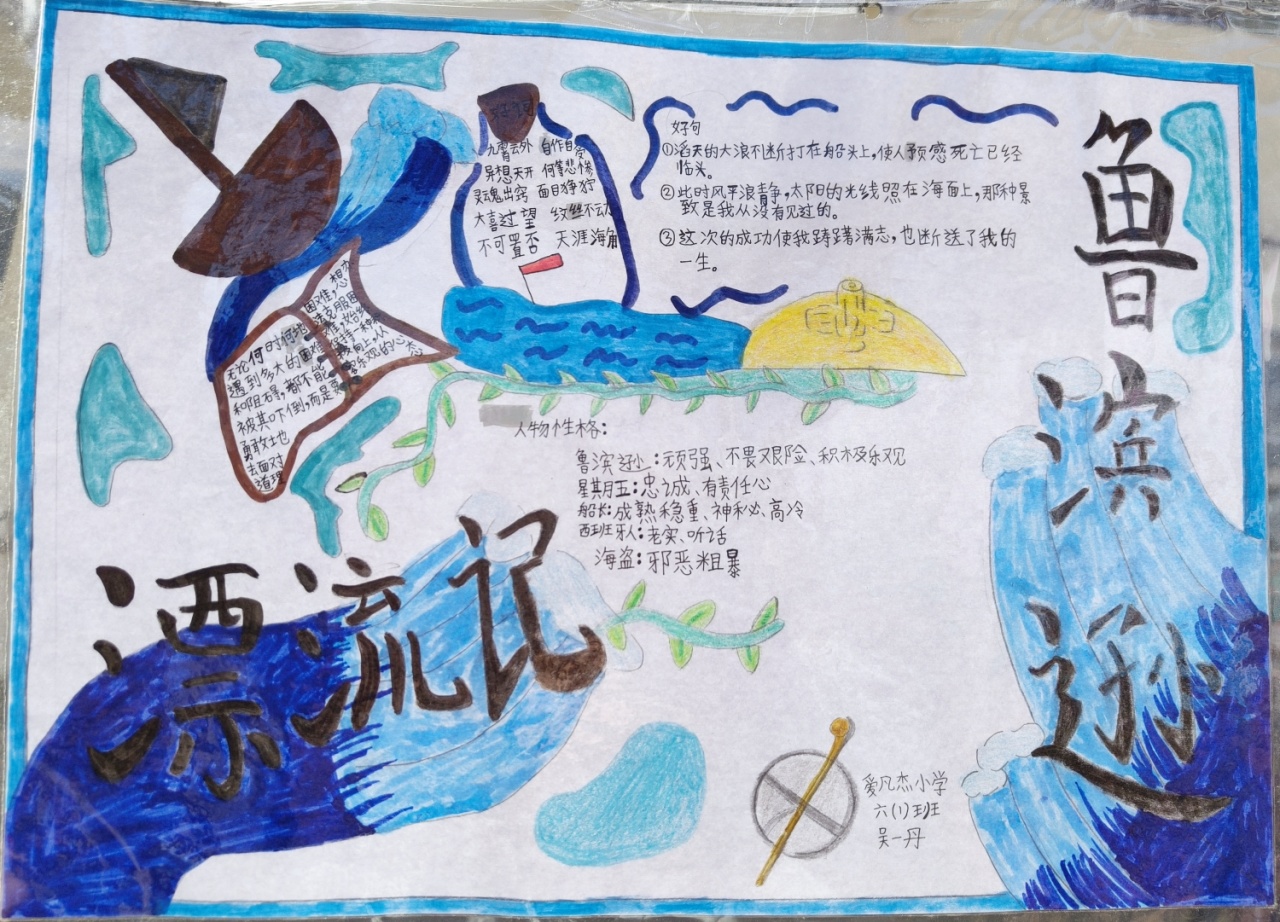 鲁
滨
逊
漂流记
九霄云外 自作自受
异想天开 何等悲惨
灵魂出窍 面目狰狞
大喜过望 纹丝不动
不可置否 天涯海角
好句
①滔天的大浪不断打在船头上,使人预感死亡已经
临头。
②此时风平浪静,太阳的光线照在海面上,那种景
致是我从没有见过的。
③这次的成功使我踌躇满志,也断送了我的
一生。
无论何时何地
遇到多大的困难
和阻碍,都不能
被其吓倒,而是要
勇敢地
去面对
道理
困难,想办
法克服困
难,始终
保持一种积
极向上,从
容乐观的心态
人物性格:
鲁滨逊:顽强、不畏艰险、积极乐观
星期五:忠诚、有责任心
船长:成熟稳重、神秘、高冷
西班牙人:老实、听话
海盗:邪恶粗暴
爱凡杰小学
六(1)班
吴一丹